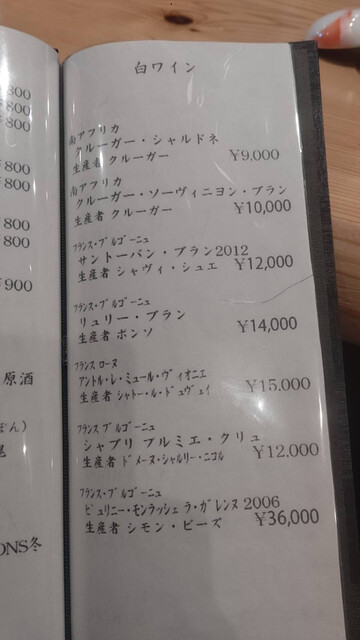 800
800
800
¥800
800
800
800
¥900
原酒
ぽん）
ONS冬
白ワイン
南アフリカ
クルーガー・シャルドネ
生産者 クルーガー ¥9.000
南アフリカ
クルーガー・ソーヴィニヨン・ブラン
生産者 クルーガー ¥10,000
フランス・ブルゴーニュ
サントーバン・ブラン2012
生産者 シャヴィ・シュエ ¥12,000
フランス・ブルゴーニュ
リュリー・ブラン
生産者 ポンソ ¥14,000
フランス ローヌ
アントル・レ・ミュール・ヴィオニエ
生産者 シャトー・ル・ドヴュェイ ¥15.000
フランス ブルゴーニュ
シャブリ プルミエ・クリュ
生産者 ドメーヌ・シャルリー・ニコル ¥12.000
フランス・ブルゴーニュ
ピュリニー・モンラッシェ ラ・ガレンヌ 2006
生産者 シモン・ビーズ ¥36,000